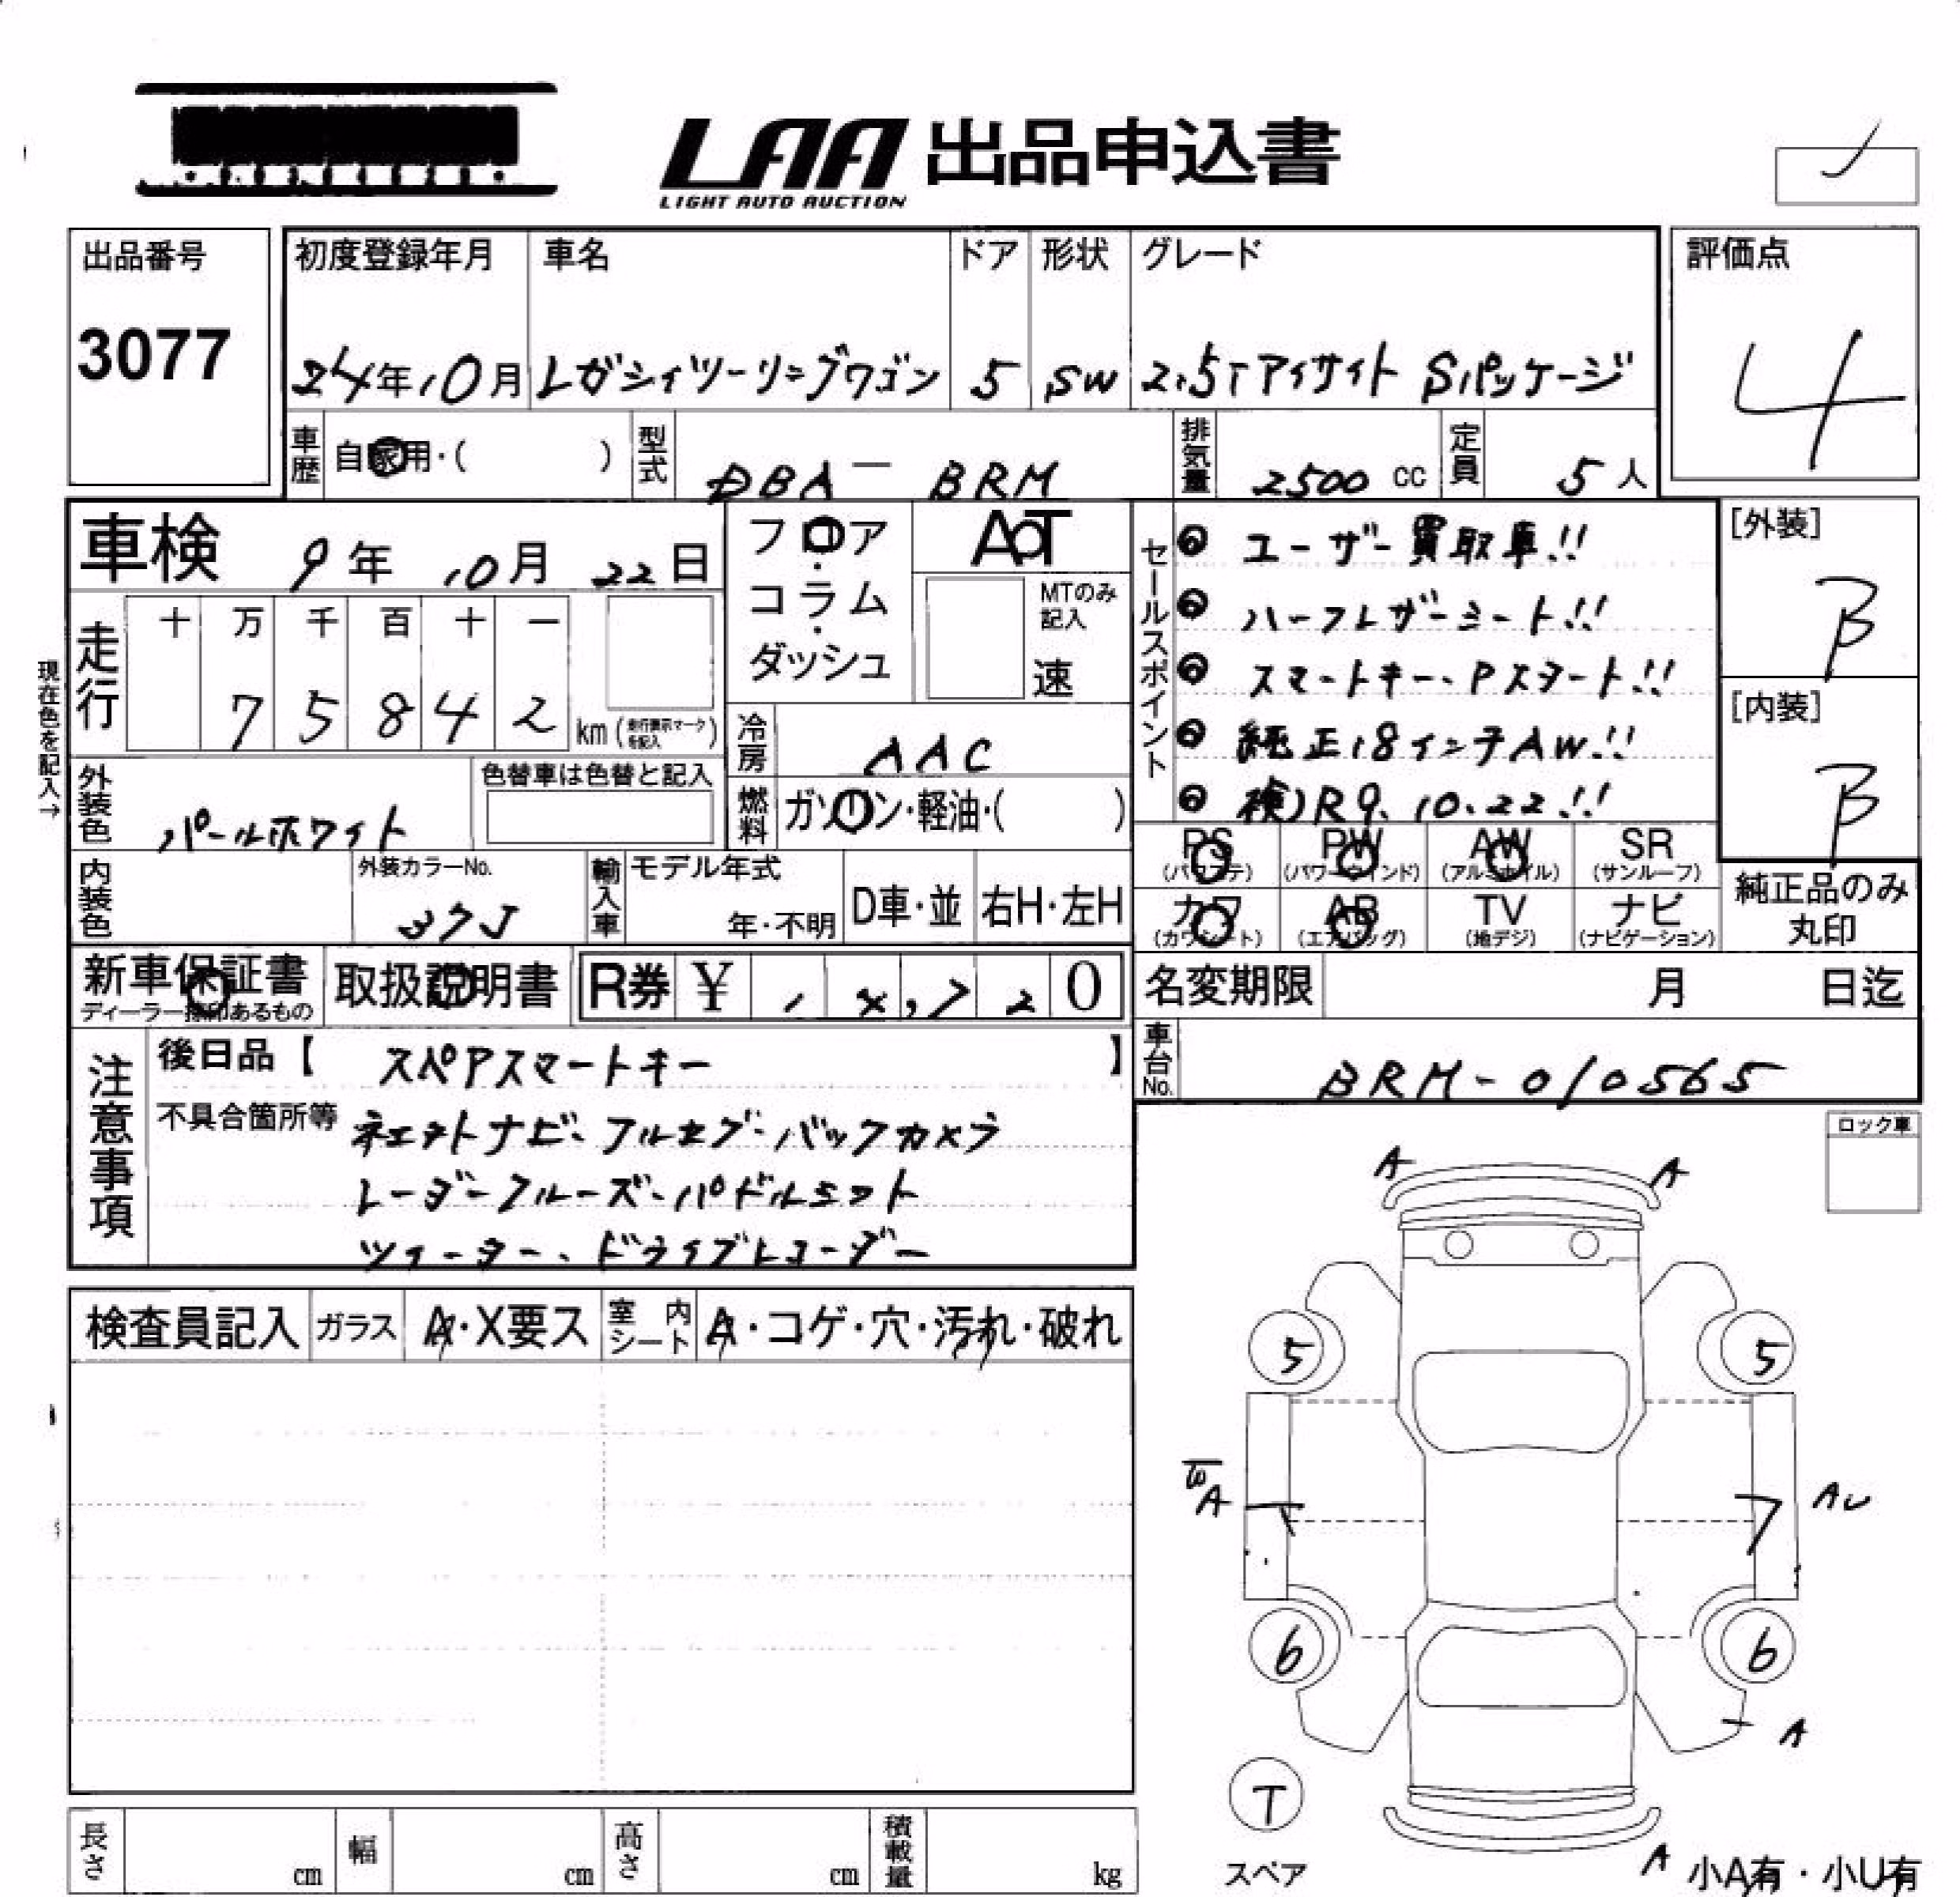 LAA 出品申込書
LIGHT AUTO AUCTION
出品番号
3077
初度登録年月 車名 ドア 形状 グレード
24年10月 レガシィツーリングワゴン 5 SW 2.5i アイサイト Sパッケージ
評価点
4
車歴 自家用・( ) 型式 DBA-BRM 排気量 2500 cc 定員 5人
車検 9年10月22日
フロア・コラム・ダッシュ
AT
MTのみ記入
速
走行 十 万 千 百 十 一
7 5 8 4 2 km (走行表示マークを記入)
現在色を記入→
冷房 AAC
燃料 ガソリン・軽油・( )
外装色 パールホワイト
色替車は色替と記入
内装色
外装カラーNo.
37J
輸入車 モデル年式
年・不明
D車・並 右H・左H
セールスポイント
ユーザー買取車!!
ハーフレザーシート!!
スマートキー、Pスタート!!
純正18インチAW!!
検)R9.10.22!!
[外装]
B
[内装]
B
PS (パワステ) PW (パワーウインド) AW (アルミホイル) SR (サンルーフ)
カワ (カワシート) AB (エアバッグ) TV (地デジ) ナビ (ナビゲーション)
純正品のみ丸印
新車保証書
ディーラー捺印あるもの
取扱説明書
R券 ¥ 0
名変期限 月 日迄
車台No. BRM-010565
注意事項
後日品【 スペアスマートキー 】
不具合箇所等 ナビ、フルセグ、バックカメラ
レーダークルーズ、パドルシフト
ツィーター、ドライブレコーダー
ロック車
検査員記入 ガラス A・X要ス 室内シート A・コゲ・穴・汚れ・破れ
A A
5 5
A AU
6 6
A
T
スペア
A 小A有・小U有
長さ cm 幅 cm 高さ cm 積載量 kg